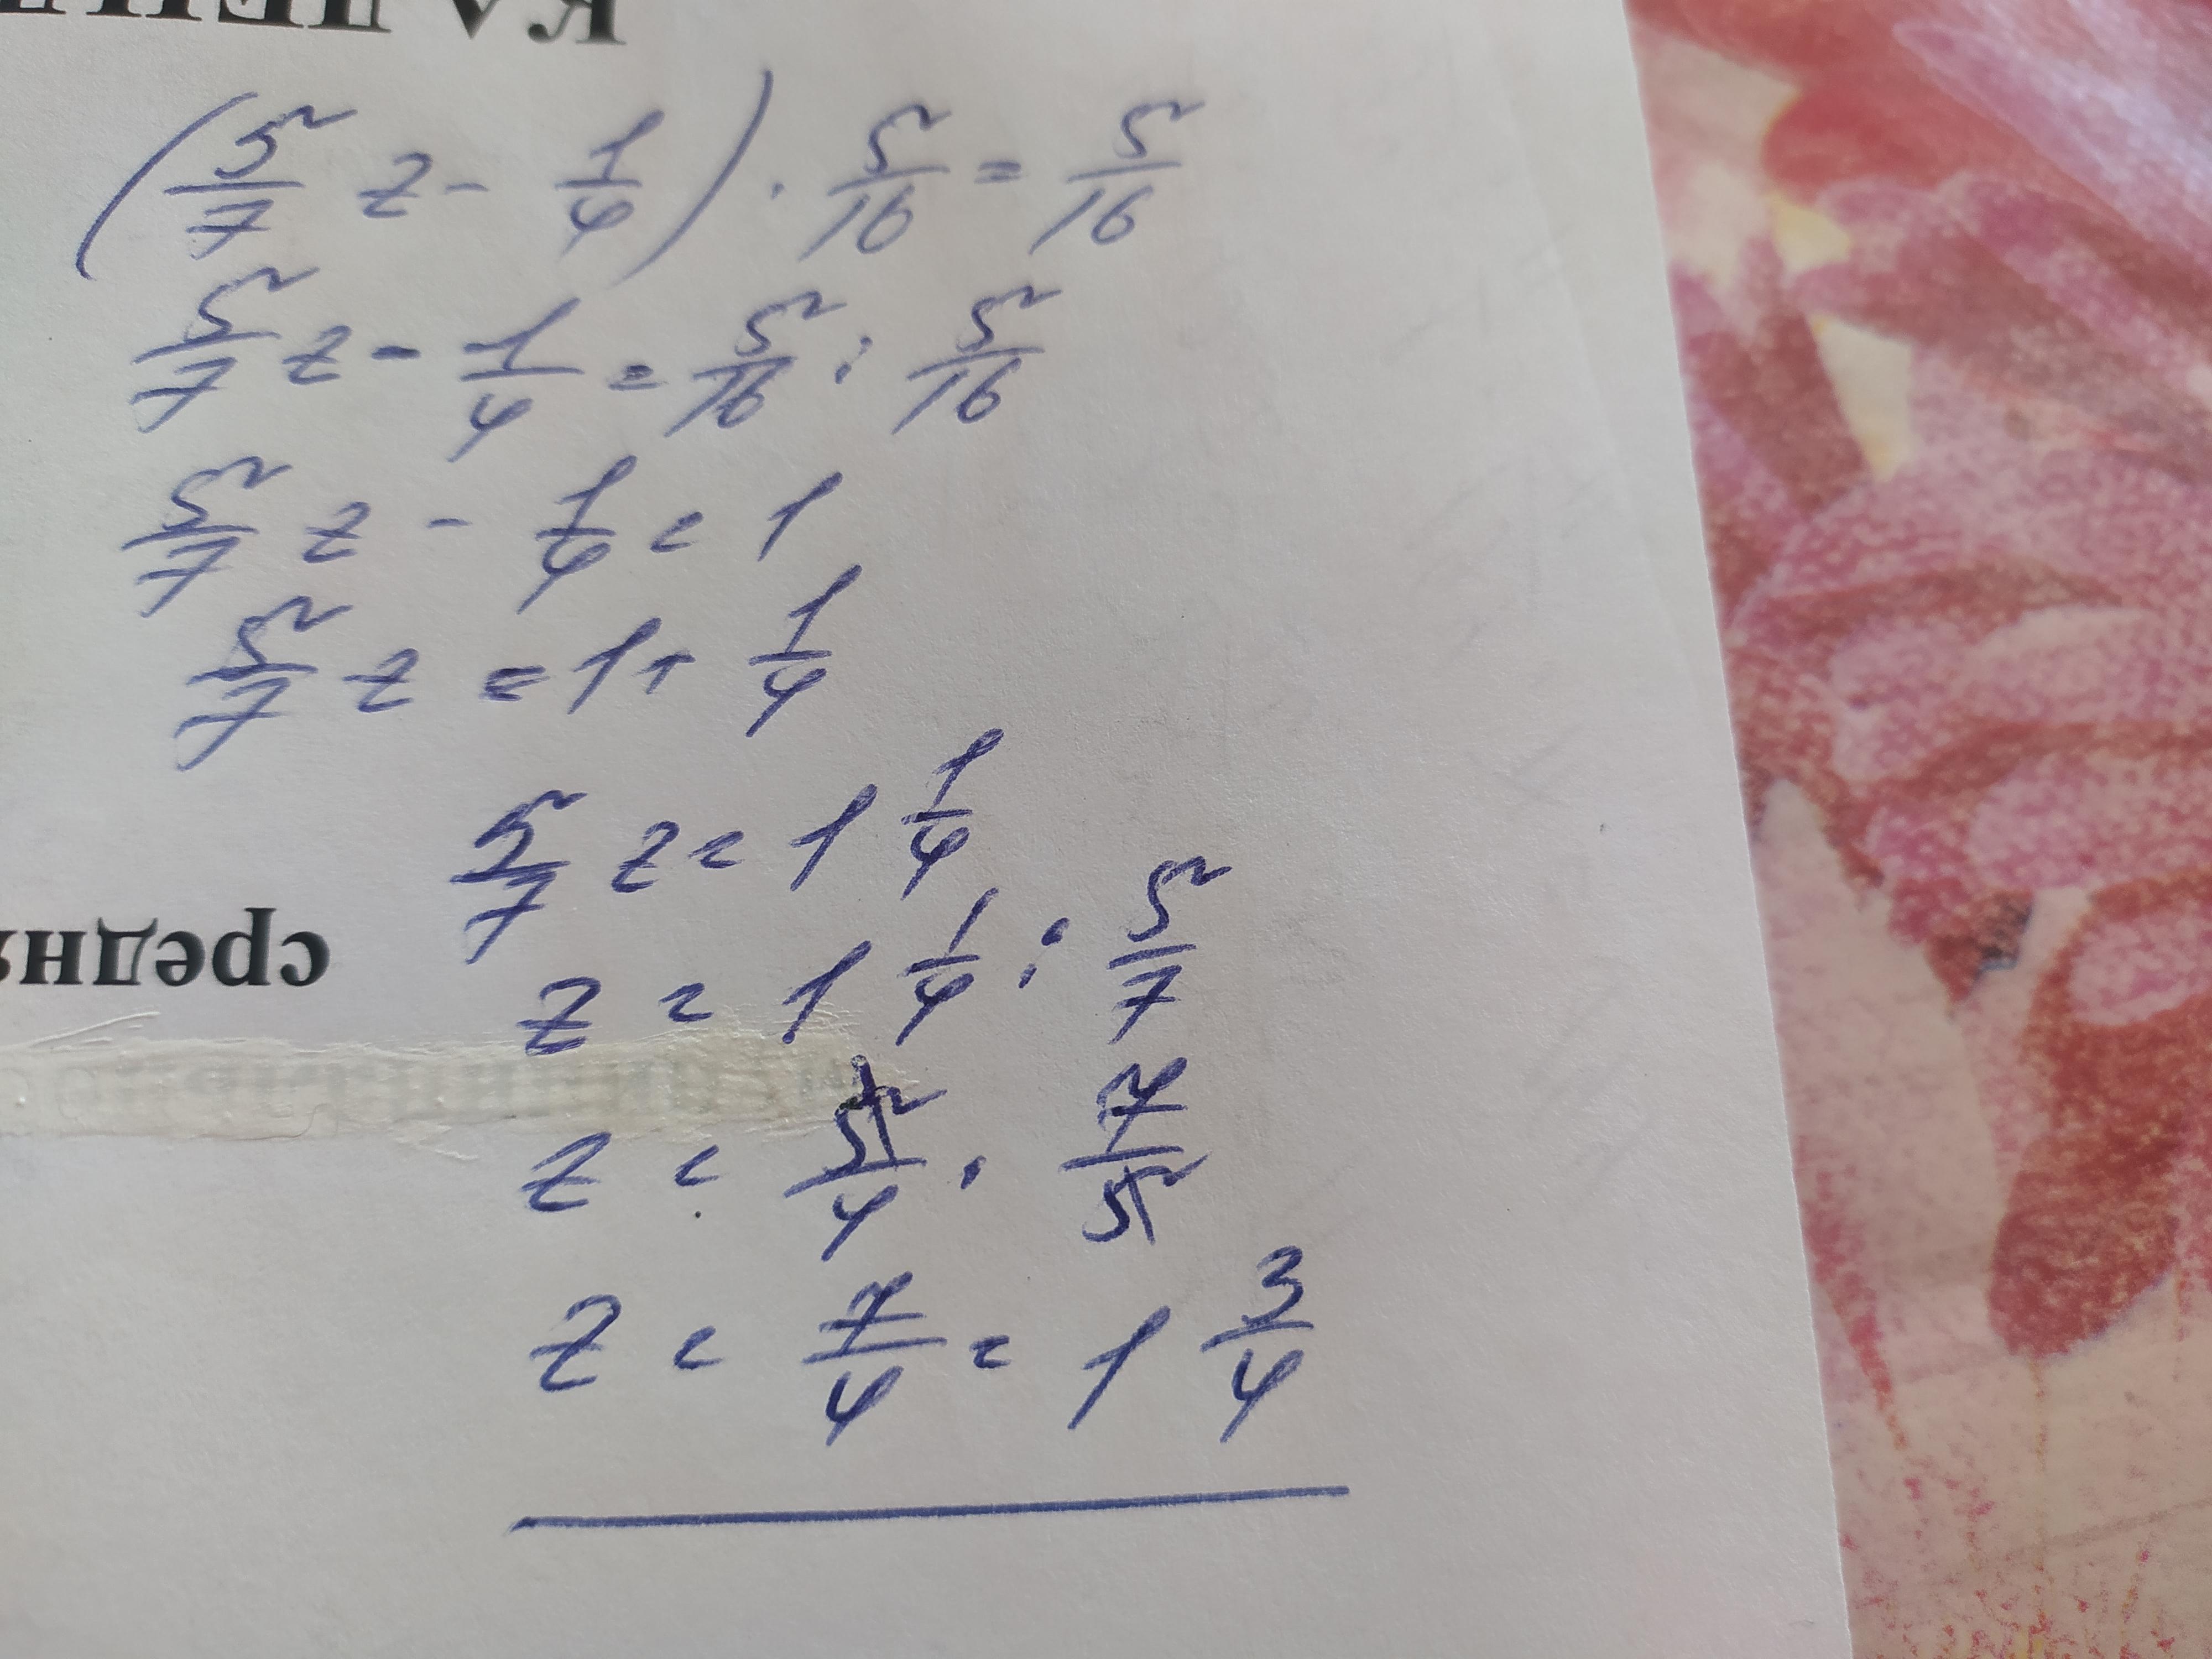 (5/7 z - 1/4) · 5/16 = 5/16
5/7 z - 1/4 = 5/16 : 5/16
5/7 z - 1/4 = 1
5/7 z = 1 + 1/4
5/7 z = 1 1/4
z = 1 1/4 : 5/7
z = 5/4 · 7/5
z = 7/4 = 1 3/4
средня